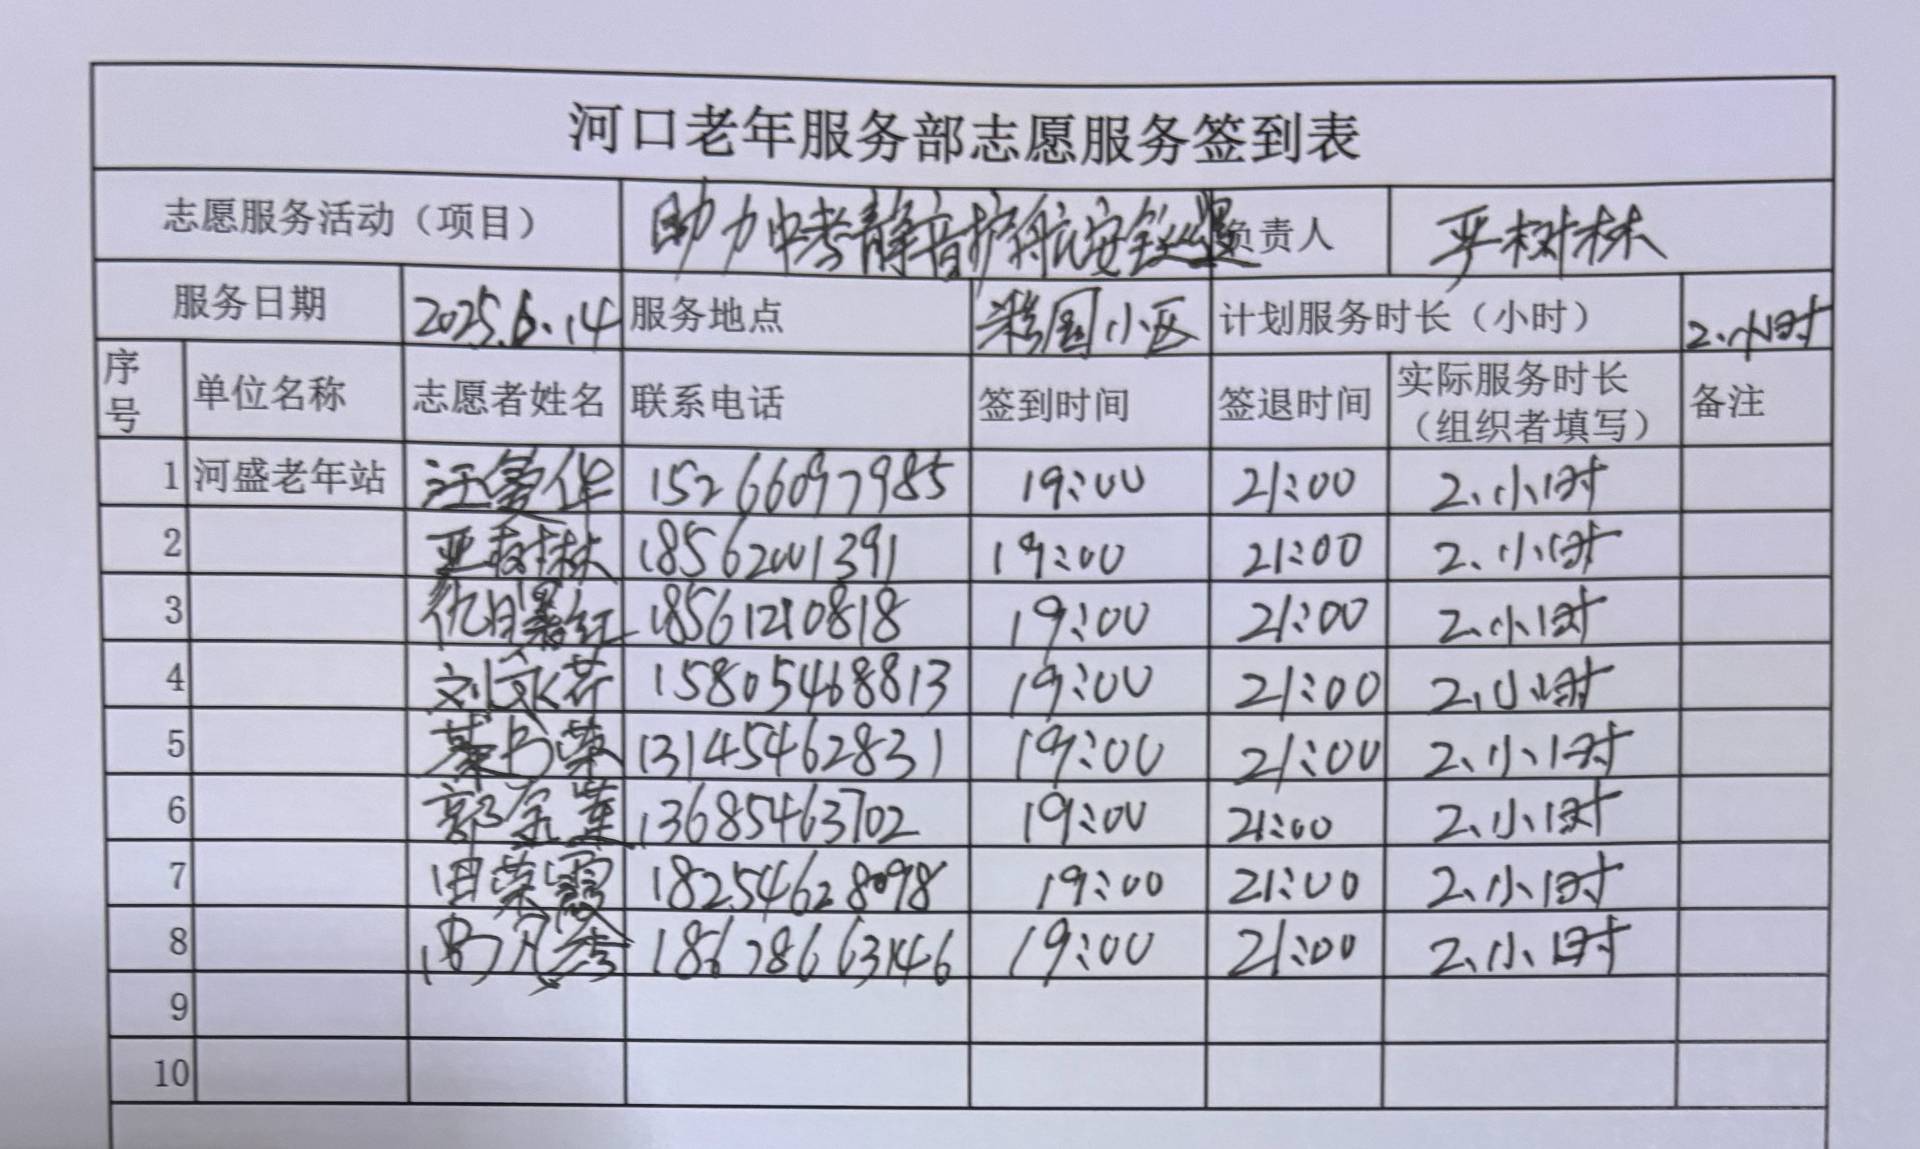 河口老年服务部志愿服务签到表
志愿服务活动（项目） 助力中考静音护航安全 负责人 严树林
服务日期 2025.6.14 服务地点 小区 计划服务时长（小时） 2.小时
序号 单位名称 志愿者姓名 联系电话 签到时间 签退时间 实际服务时长（组织者填写） 备注
1 河盛老年站 汪爱华 15266097985 19:00 21:00 2.小时
2 严树林 18562001391 19:00 21:00 2.小时
3 18561210818 19:00 21:00 2.小时
4 刘永芬 15805468813 19:00 21:00 2.小时
5 13145462831 19:00 21:00 2.小时
6 郭金莲 13685463702 19:00 21:00 2.小时
7 田荣霞 18254628098 19:00 21:00 2.小时
8 18678663146 19:00 21:00 2.小时
9
10